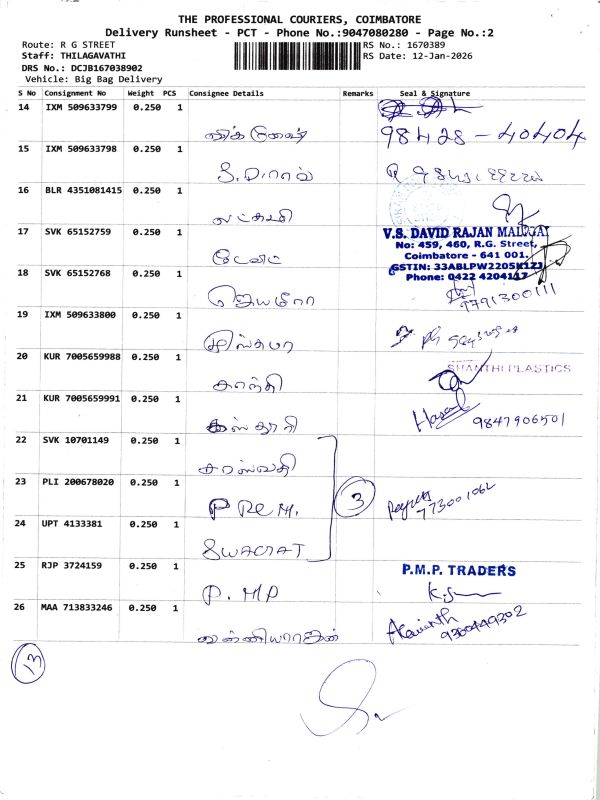 THE PROFESSIONAL COURIERS, COIMBATORE
Delivery Runsheet - PCT - Phone No.:9047080280 - Page No.:2
Route: R G STREET
Staff: THILAGAVATHI
DRS No.: DCJB167038902
Vehicle: Big Bag Delivery
RS No.: 1670389
RS Date: 12-Jan-2026
S No Consignment No Weight PCS Consignee Details Remarks Seal & Signature
14 IXM 509633799 0.250 1
98428-40404
15 IXM 509633798 0.250 1
16 BLR 4351081415 0.250 1 லட்சுமி
17 SVK 65152759 0.250 1 டேவிட்
V.S. DAVID RAJAN
No: 459, 460, R.G. Street,
Coimbatore - 641 001.
GSTIN: 33ABLPW2205K1ZJ
Phone: 0422 4204117
18 SVK 65152768 0.250 1 ஜெயமீரா
9791300111
19 IXM 509633800 0.250 1
20 KUR 7005659988 0.250 1 சாந்தி
SHANTHI PLASTICS
21 KUR 7005659991 0.250 1 கஸ்தூரி
9847906501
22 SVK 10701149 0.250 1 சரஸ்வதி
23 PLI 200678020 0.250 1 PREM.
3
773001062
24 UPT 4133381 0.250 1 SWAGAT
25 RJP 3724159 0.250 1 P. MP
P.M.P. TRADERS
26 MAA 713833246 0.250 1
9360449302
13